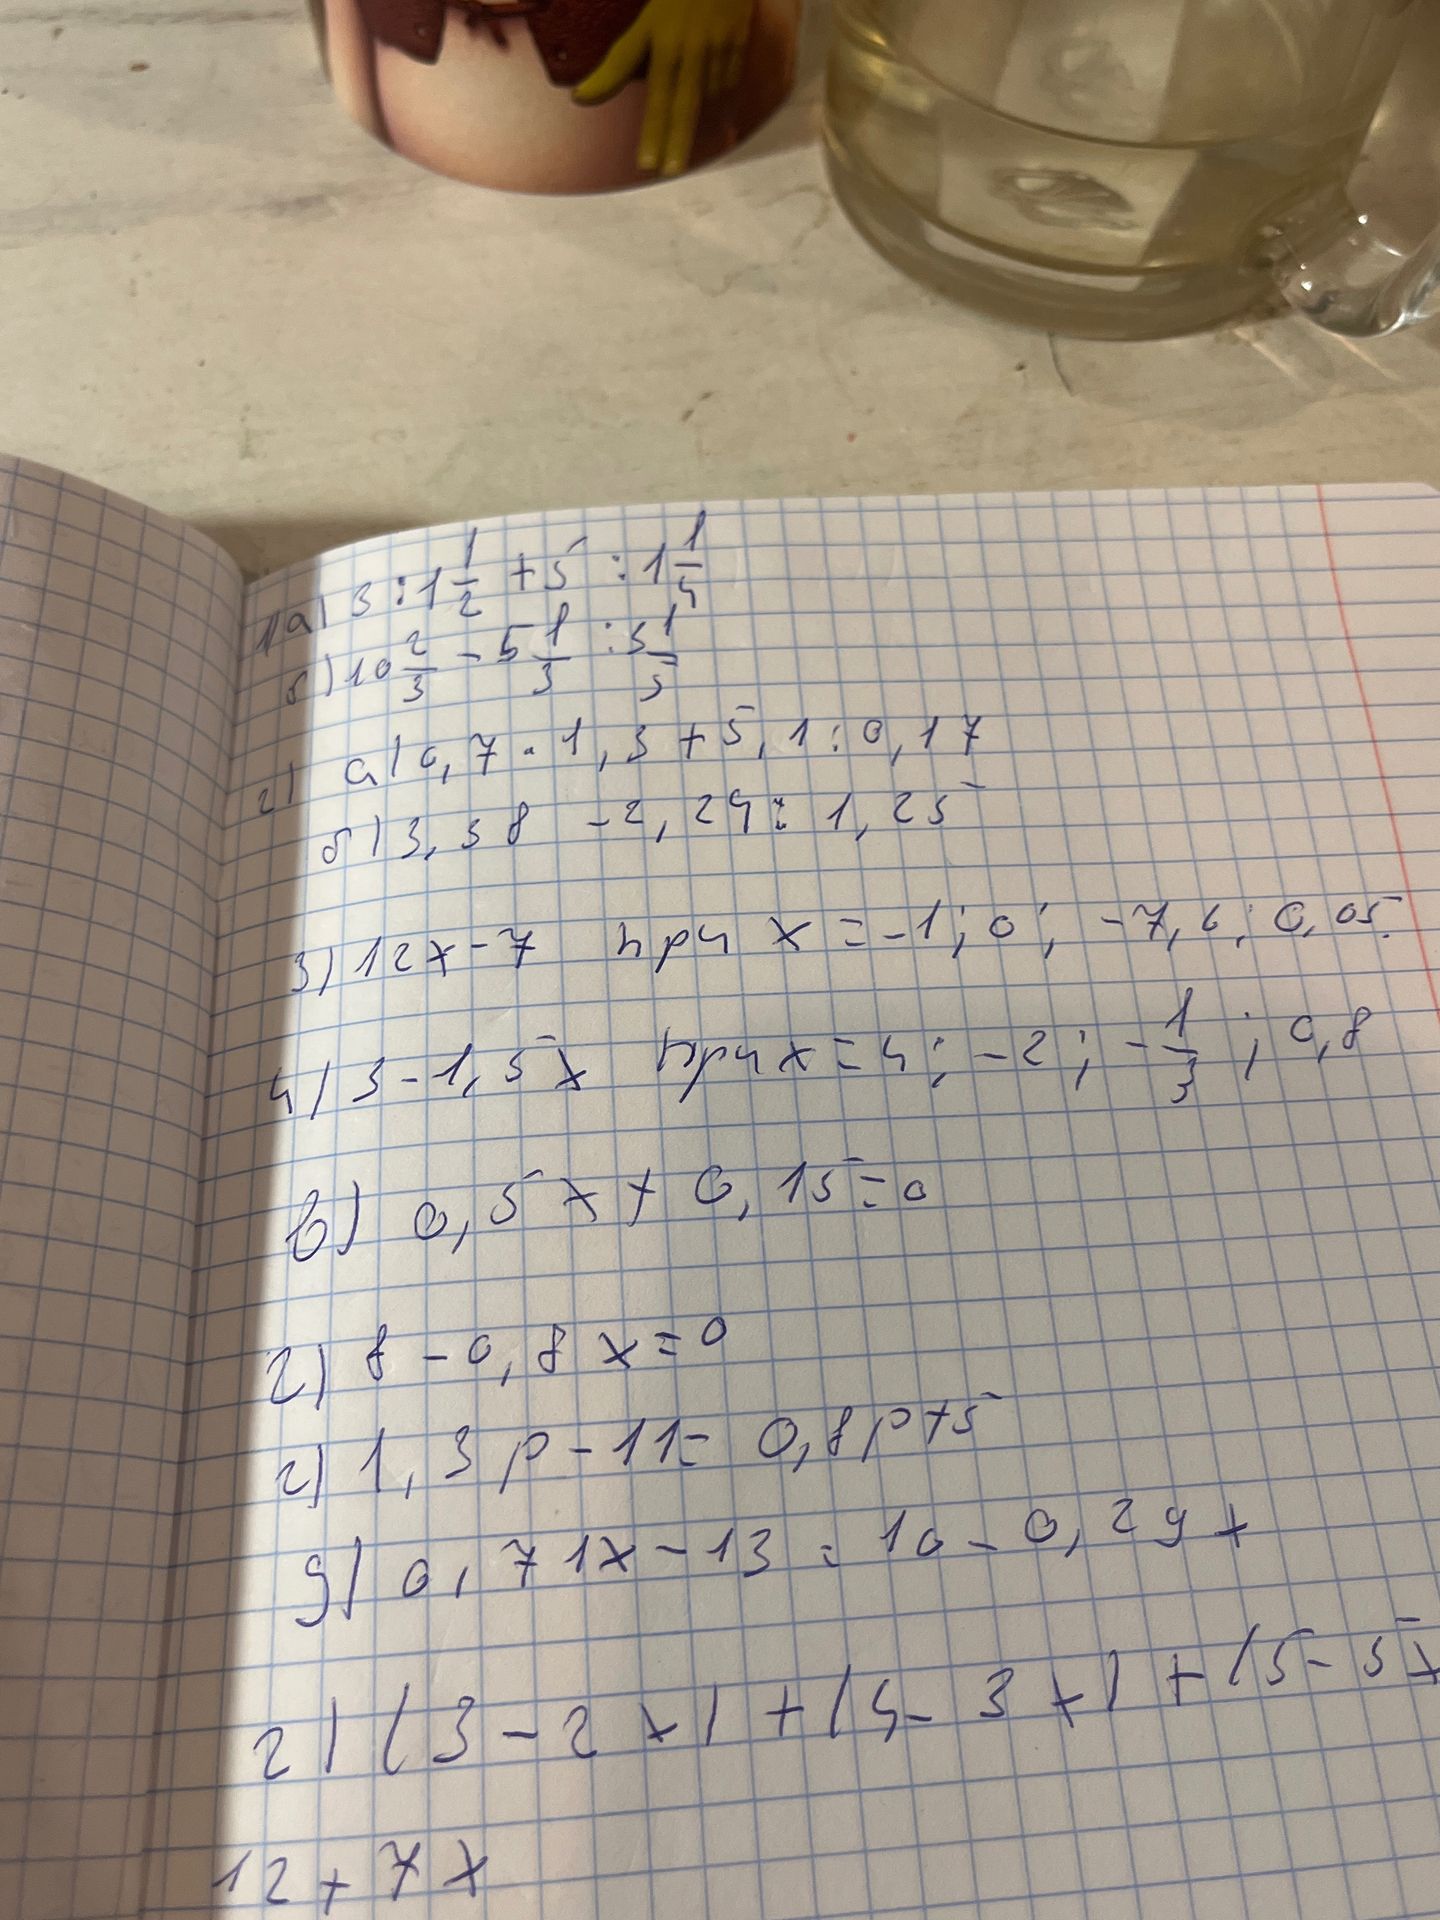 1) а) 3 : 1 1/2 + 5 : 1 1/4
б) 10 2/3 - 5 1/3 : 3 1/5
2) а) 0,7 · 1,3 + 5,1 : 0,17
б) 3,38 - 2,24 : 1,25
3) 12x - 7 при x = -1; 0; -7,6; 0,05.
4) 3 - 1,5x при x = 4; -2; -1/3; 0,8
в) 0,5x + 0,15 = 0
г) 8 - 0,8x = 0
г) 1,3p - 11 = 0,8p + 5
д) 0,71x - 13 = 10 - 0,29x
г) (3 - 2x) + (4 - 3x) + (5 - 5x
12 + 7x